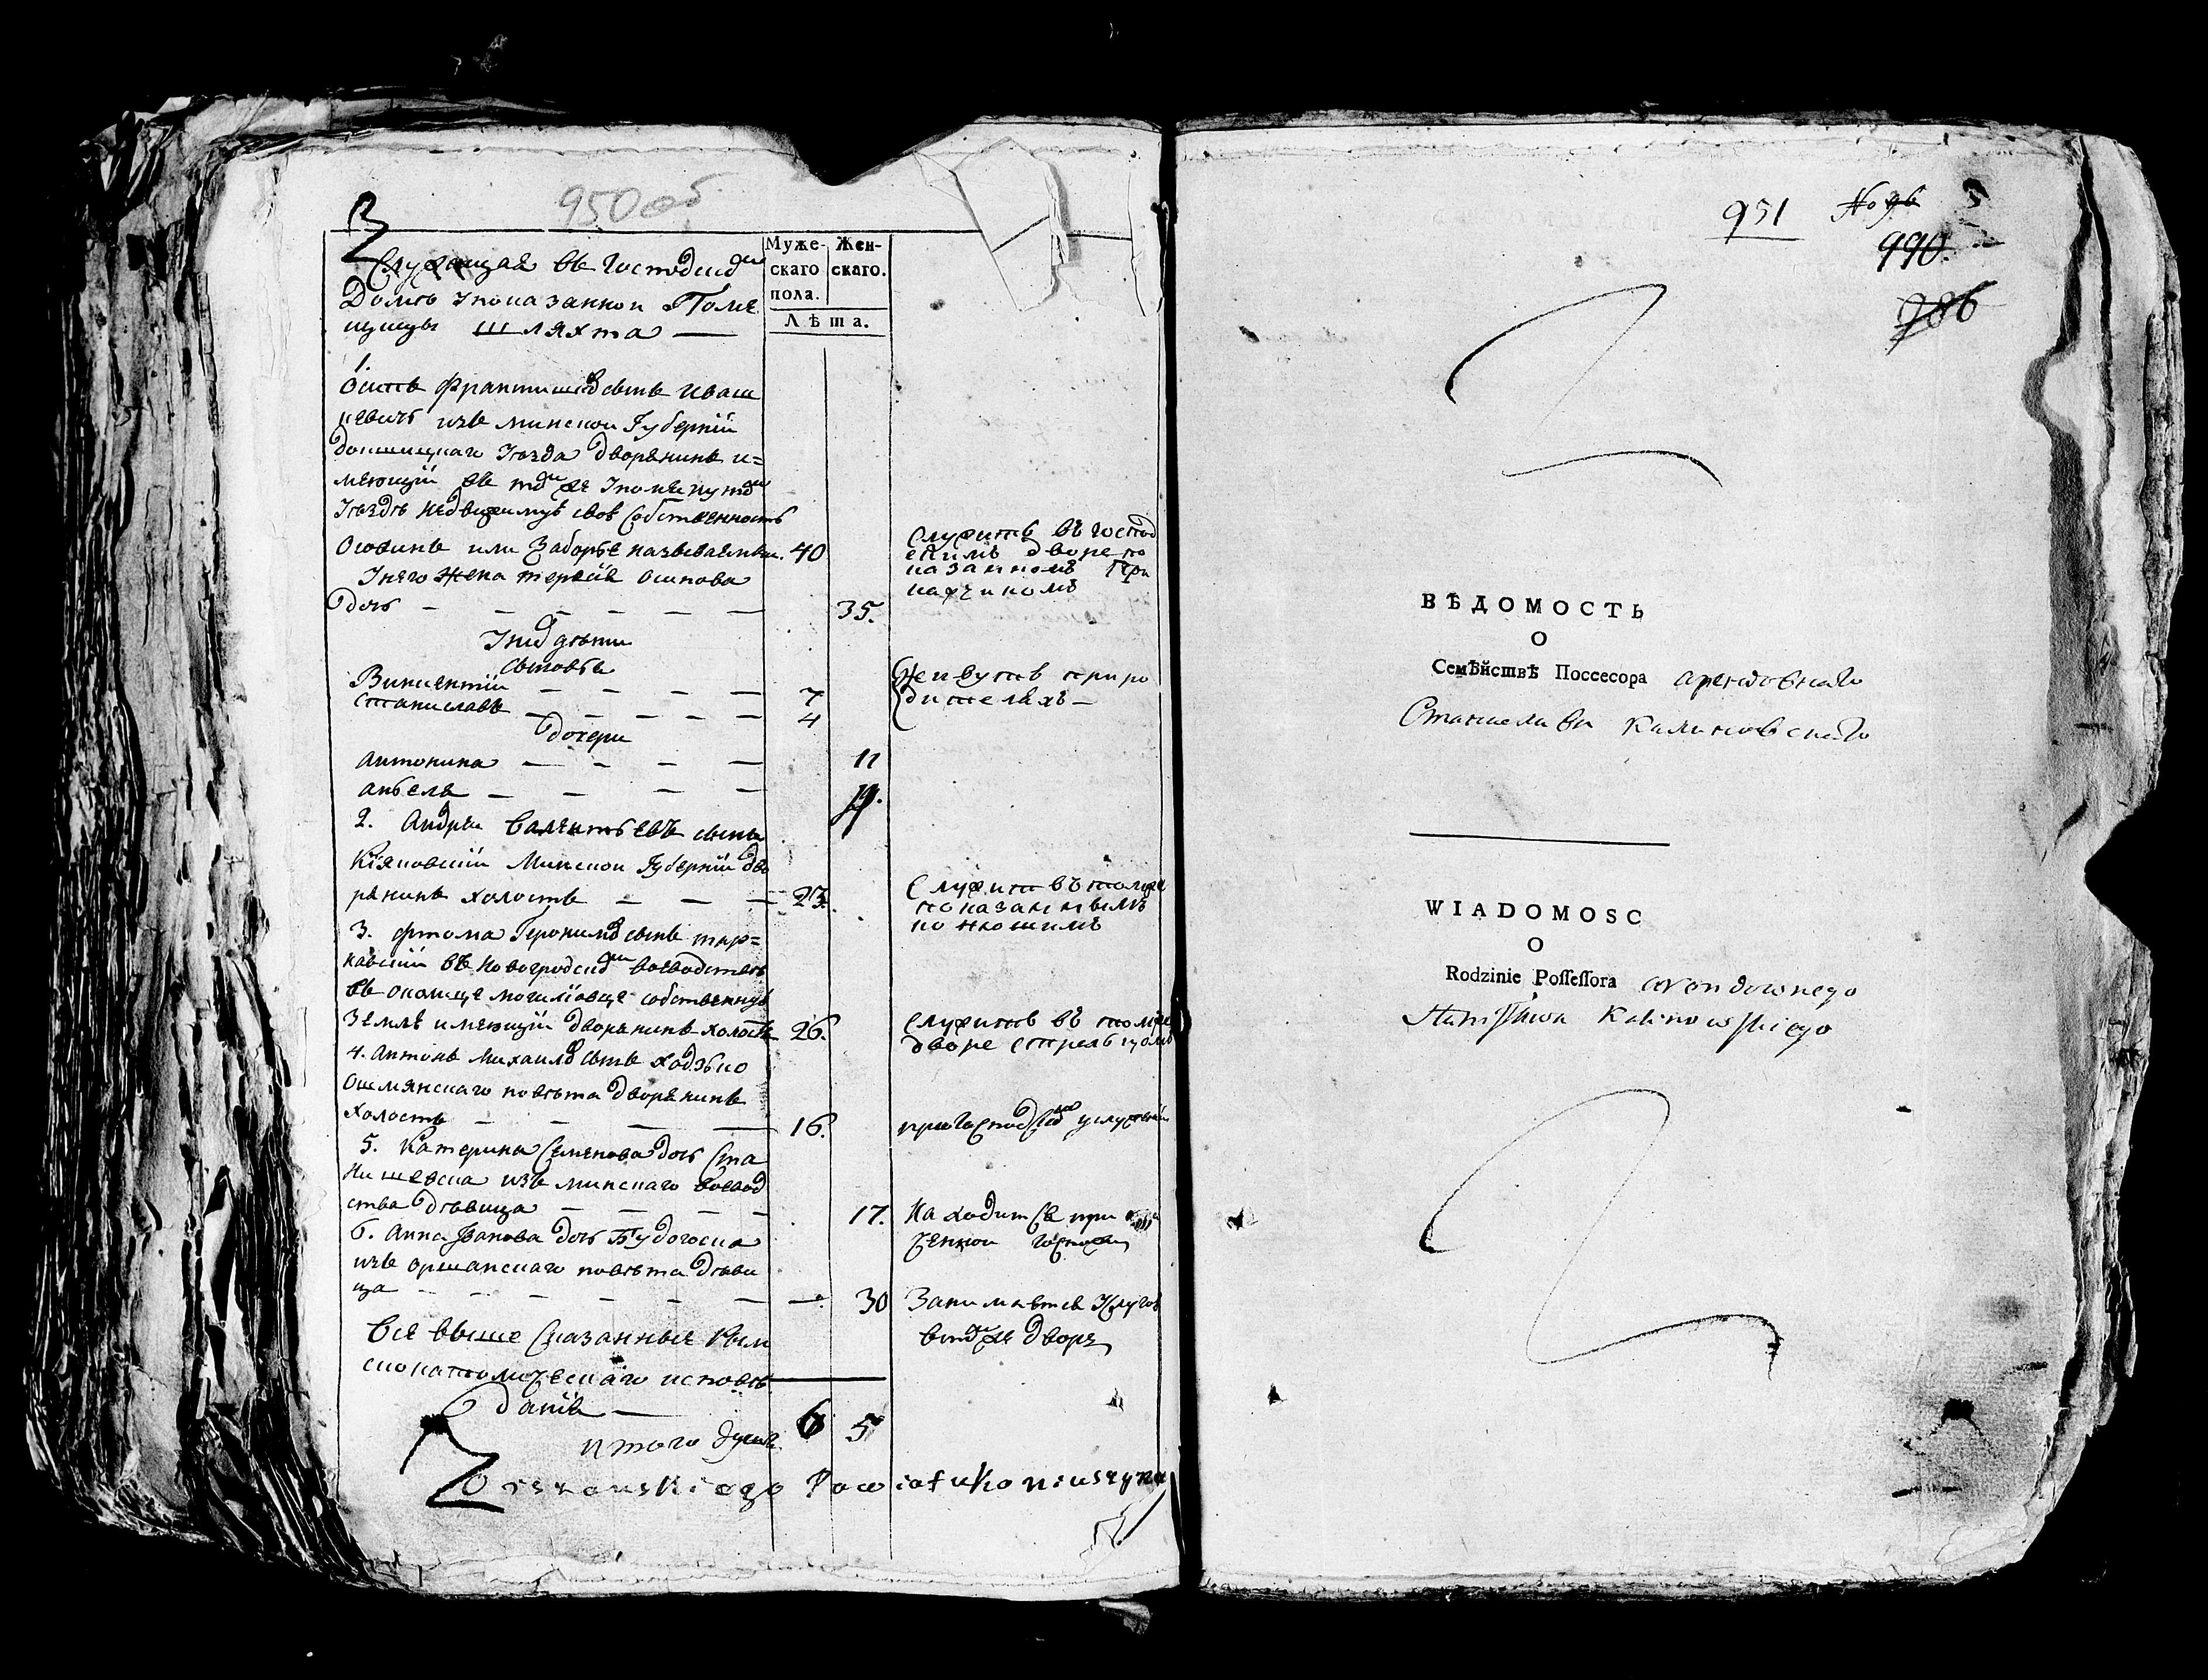 950 об
Муже-
скаго
пола.
Жен-
скаго.
Лѣта.
Служащая въ господской
Домѣ упоказанной Поме
щицы шляхта —
1.
Осипъ Францишковъ сынъ Иваш
кевичъ изъ минской Губерніи
докшицкаго уѣзда дворянинъ и=
мѣющій въ томже упомянутомъ
уѣздѣ недвижимую свою собственность
или Заборье называемым. 40
Служитъ въ господ
скимъ дворе по
казанномъ при
казчикомъ
У него жена терезія осипова
дочь — — — — — — 35.
У них дѣти
сыновья
Викентій — — — — 7
Станиславъ — — — — — 4
Живутъ при ро
дителяхъ —
дочери
антонина — — — — 11
анеля — — — —
2. Андрей Валентьевъ сынъ
Кіяновскій Минской Губерніи дво
рянинъ холостъ — — — 23.
Служит въ томже
показанным
3. фтома Геронимовъ сынъ тар=
навскій въ новогродском воеводствѣ
въ околице собственную
Землю имеющій дворянинъ холостъ 26.
Служитъ въ томже
дворе стрельцомъ
4. Антонъ михаиловъ сынъ ходзько
ошмянскаго повѣта дворянинъ
холостъ — — — — 16.
при господской услужении
5. Катерина Семенова дочь Ста
нишевска изъ минскаго воевод
ства дѣвица — — — — 17.
Находится при
6. Анна Іванова дочь Будогоска
изъ оршанскаго повѣта дѣви
ца — — — — — — — 30
Занимается услугою
в томже дворе
Все выше сказанные Рым
скокатолическаго исповѣ
данія —
итого душъ 6 5
Orszanskiego Powiatu Koniuszyna
951
No 96
990.
986
ВѢДОМОСТЬ
О
Семѣйствѣ Поссесора арендовнаго
Станислава Калиновскаго
WIADOMOSC
O
Rodzinie Possessora arendownego
Stanisława Kalinowskiego